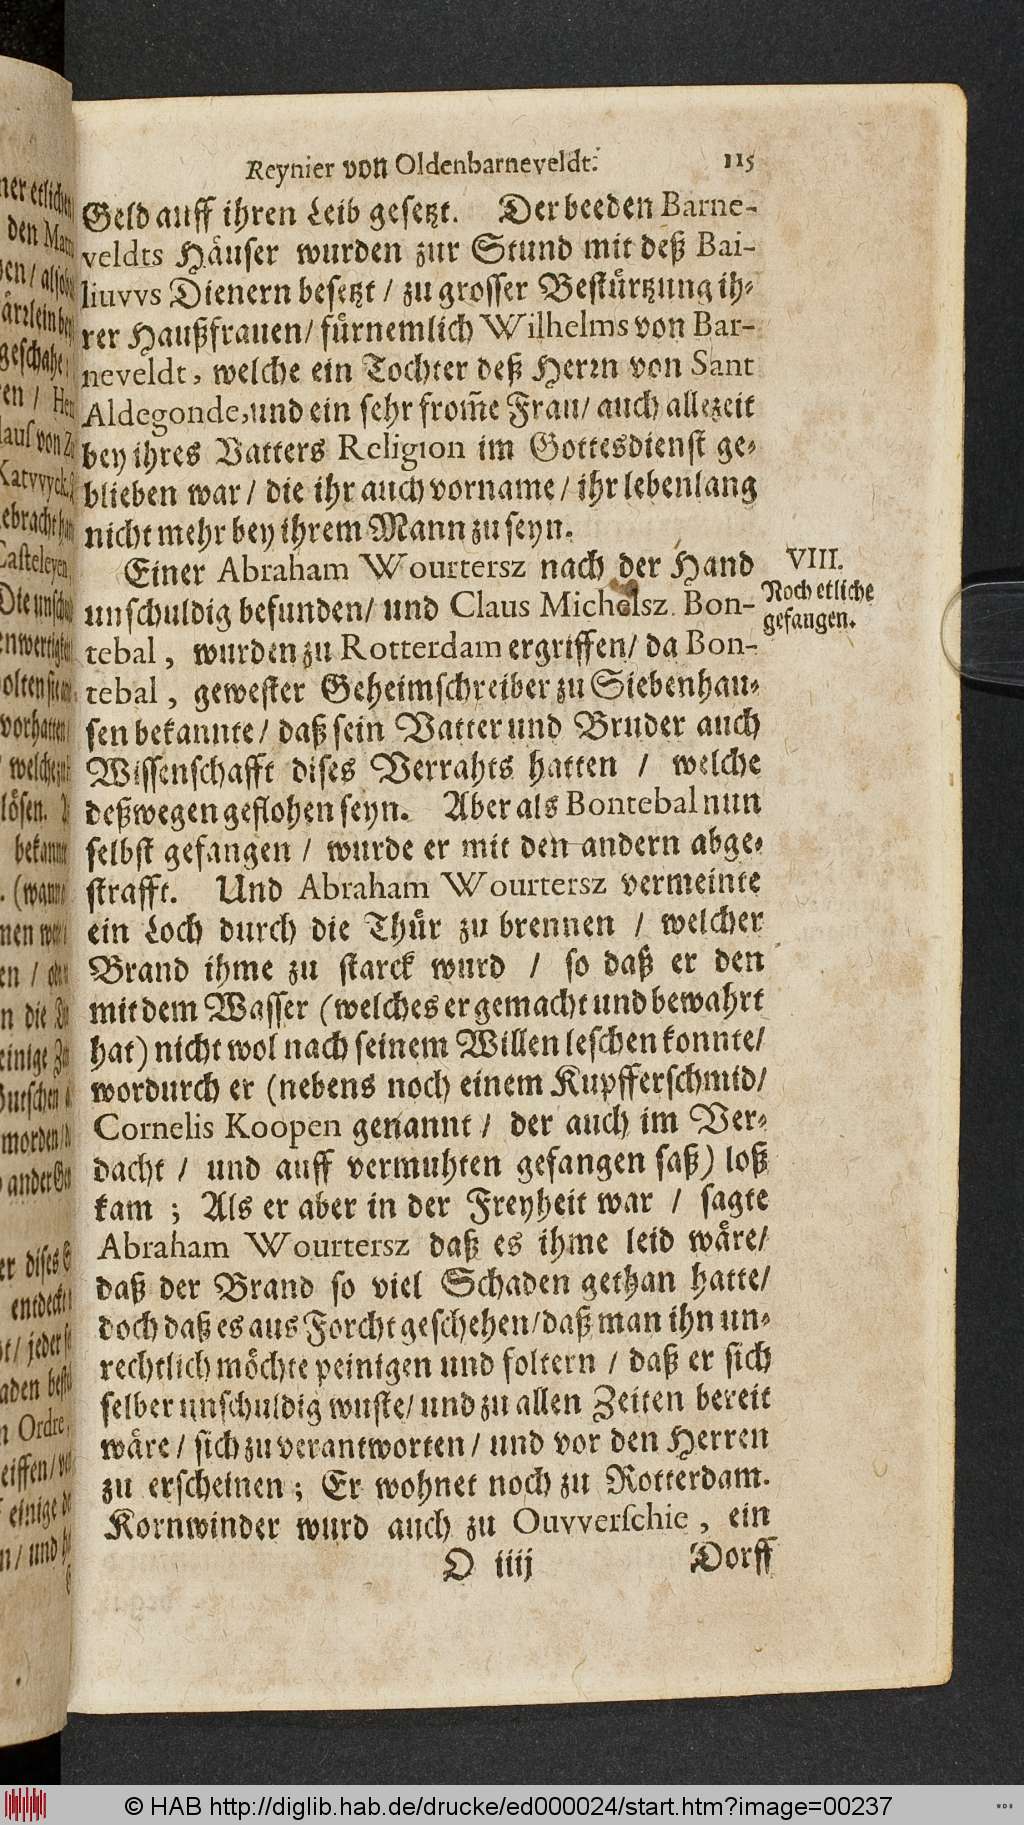 Reynier von Oldenbarneveldt. 115
Geld auff ihren Leib gesetzt. Der beeden Barne-
veldts Häuser wurden zur Stund mit deß Bai-
liuvvs Dienern besetzt / zu grosser Bestürtzung ih-
rer Haußfrauen / fürnemlich Wilhelms von Bar-
neveldt, welche ein Tochter deß Herrn von Sant
Aldegonde, und ein sehr from̃e Frau / auch allezeit
bey ihres Vatters Religion im Gottesdienst ge-
blieben war / die ihr auch vorname / ihr lebenlang
nicht mehr bey ihrem Mann zu seyn.
Einer Abraham Wourtersz nach der Hand
unschuldig befunden / und Claus Michelsz Bon-
tebal, wurden zu Rotterdam ergriffen / da Bon-
tebal, gewester Geheimschreiber zu Siebenhau-
sen bekannte / daß sein Vatter und Bruder auch
Wissenschafft dises Verrahts hatten / welche
deßwegen geflohen seyn. Aber als Bontebal nun
selbst gefangen / wurde er mit den andern abge-
strafft. Und Abraham Wourtersz vermeinte
ein Loch durch die Thür zu brennen / welcher
Brand ihme zu starck wurd / so daß er den
mit dem Wasser (welches er gemacht und bewahrt
hat) nicht wol nach seinem Willen leschen konnte /
wordurch er (nebens noch einem Kupfferschmid /
Cornelis Koopen genannt / der auch im Ver-
dacht / und auff vermuhten gefangen saß) loß
kam ; Als er aber in der Freyheit war / sagte
Abraham Wourtersz daß es ihme leid wäre /
daß der Brand so viel Schaden gethan hatte /
doch daß es aus Forcht geschehen / daß man ihn un-
rechtlich möchte peinigen und foltern / daß er sich
selber unschuldig wuste / und zu allen Zeiten bereit
wäre / sich zu verantworten / und vor den Herren
zu erscheinen ; Er wohnet noch zu Rotterdam.
Kornwinder wurd auch zu Ouvverschie, ein
O iiij Dorff
VIII.
Noch etliche
gefangen.
© HAB http://diglib.hab.de/drucke/ed000024/start.htm?image=00237